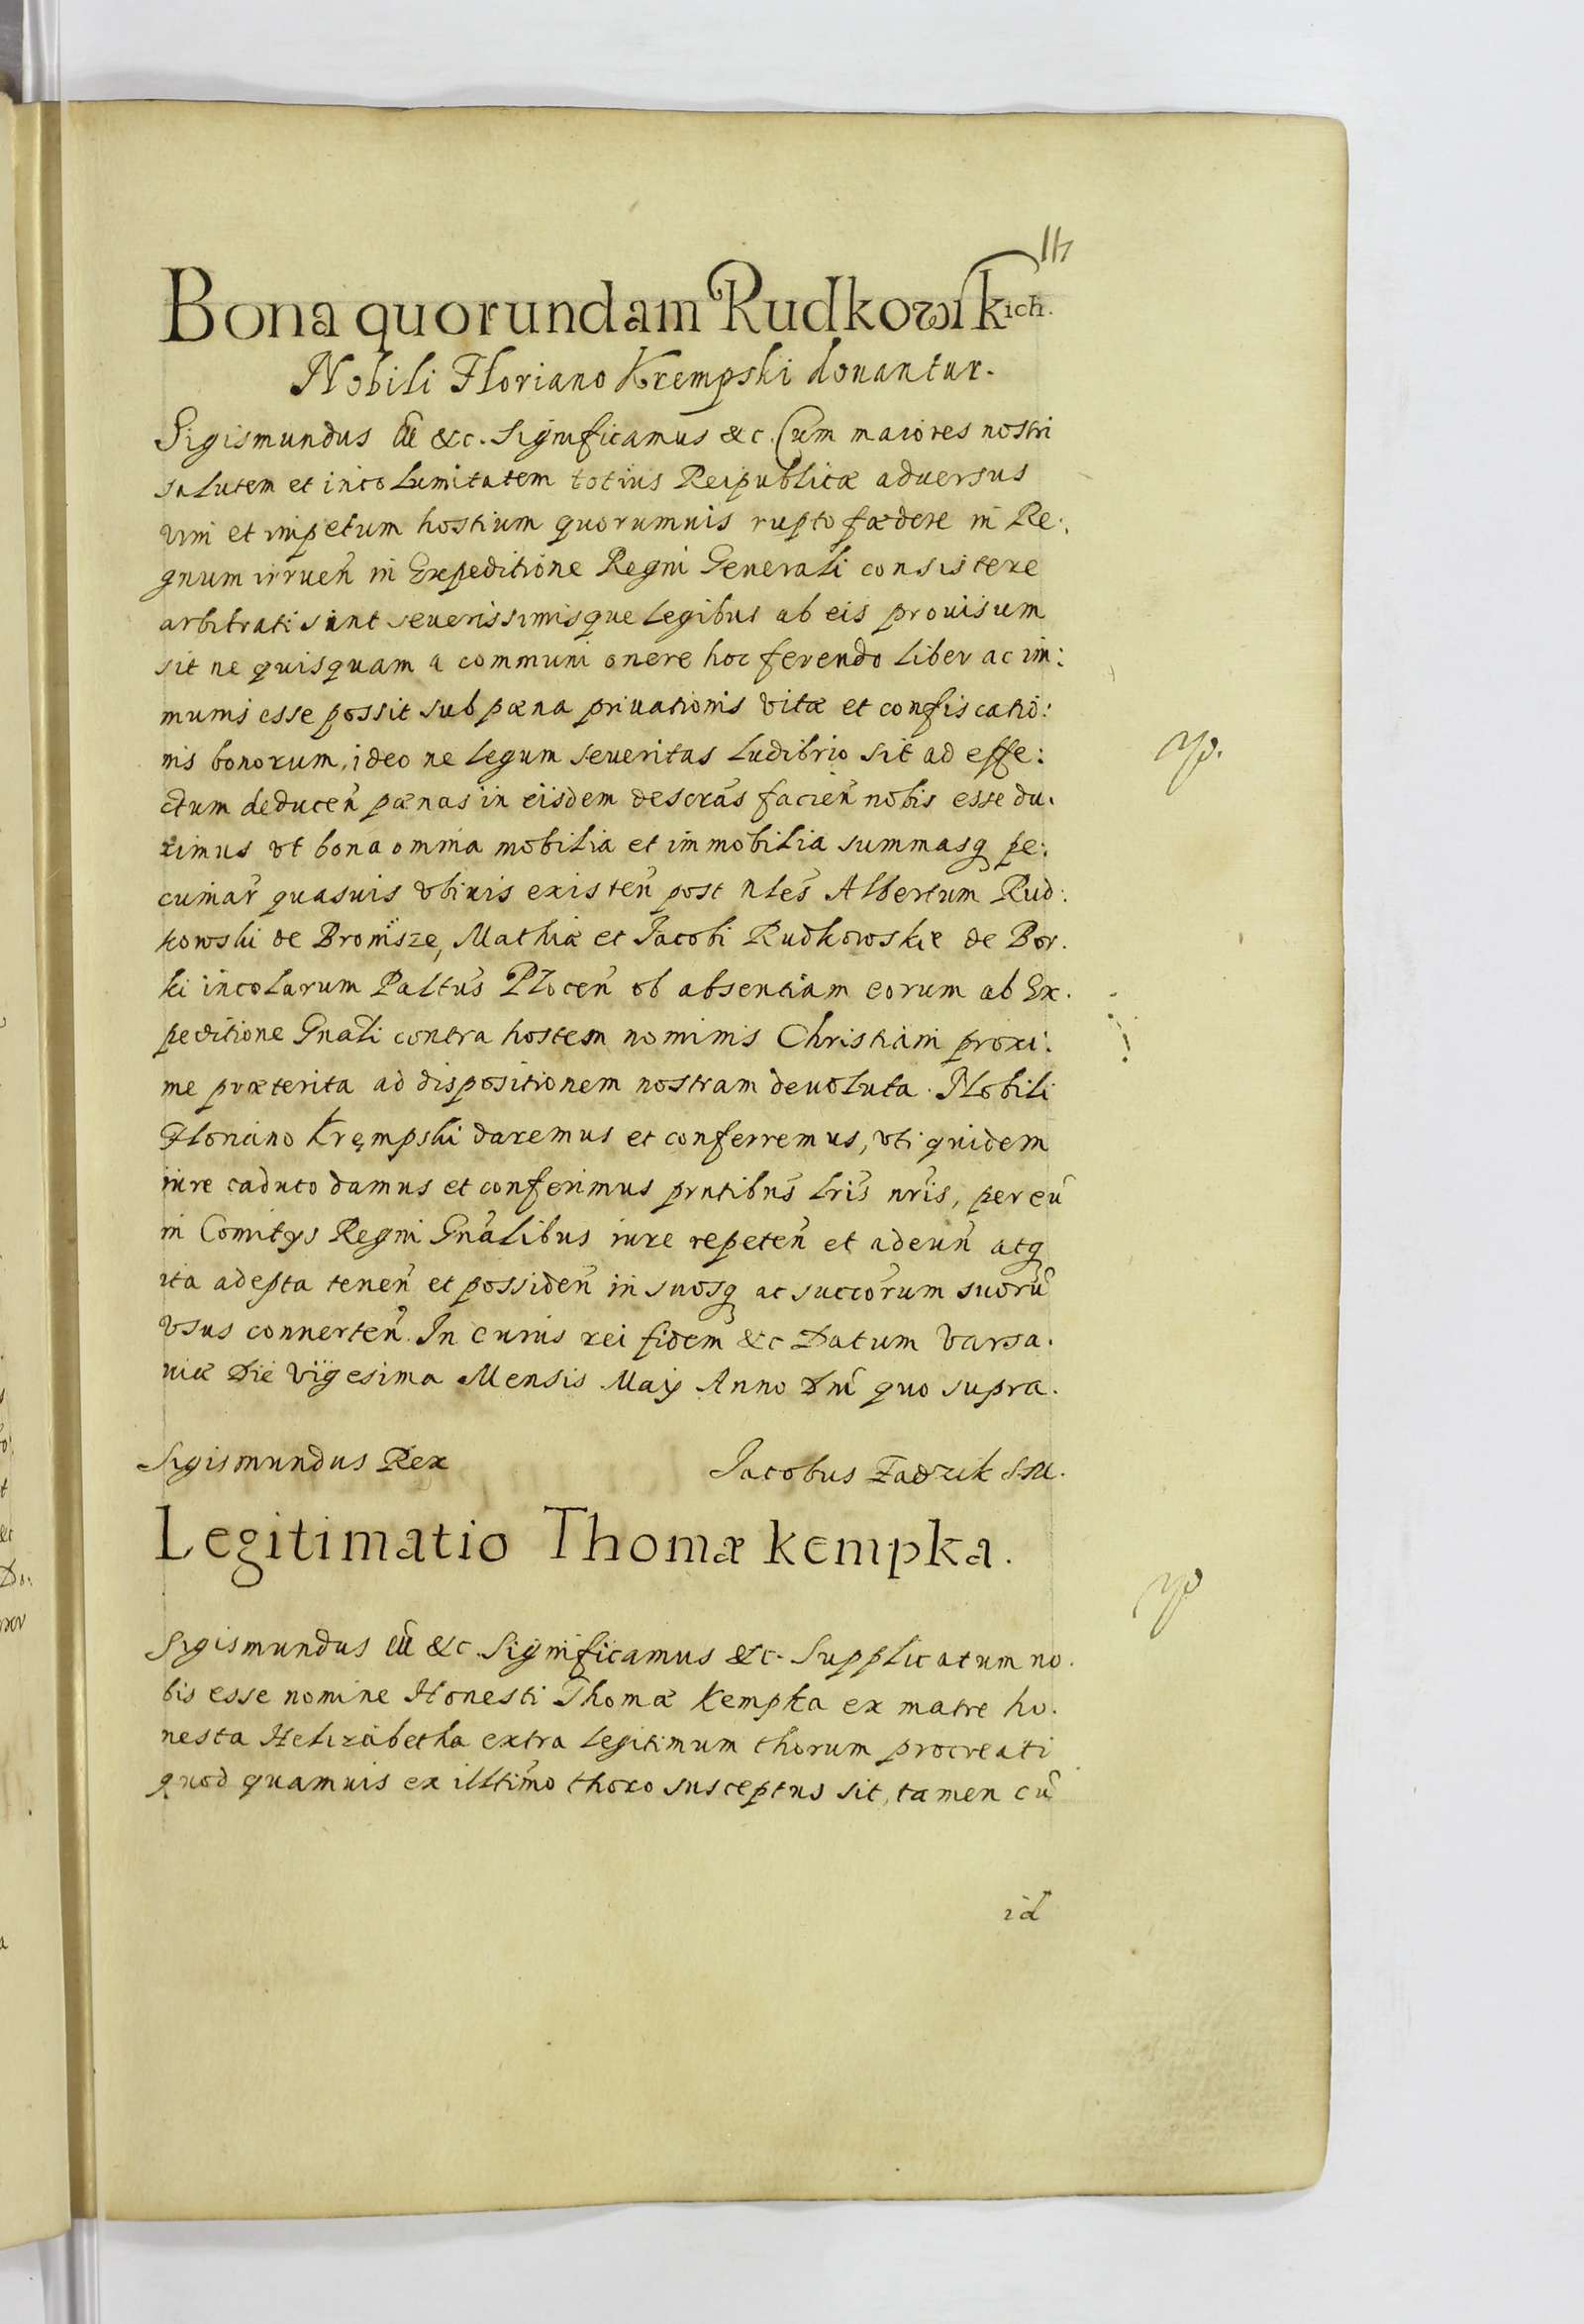 Bona quorundam Rudkowskich.
Nobili Floriano Krempski donantur.
Sigismundus &c. Significamus &c. Cum maiores nostri
salutem et incolumitatem totius Reipublicæ aduersus
vim et impetum hostium quorumuis rupto fædere in Re:
gnum irrueñ in Expeditione Regni Generali consistere
arbitrati sint seuerissimisque legibus ab eis prouisum
sit ne quisquam a communi onere hoc ferendo liber ac im:
munis esse possit sub pæna priuationis vitæ et confiscatio:
nis bonorum, ideo ne legum seueritas ludibrio sit ad effe:
ctum deduceñ pænas in eisdem descrãs facień nobis esse du.
ximus vt bona omnia mobilia et immobilia summasq pe:
cuniar̃ quasuis vbiuis existeñ post Nleś Albertum Rud:
kowski de Bronisze, Mathiæ et Jacobi Rudkowskie de Bor.
ki incolarum Paltuś Płoceñ ob absentiam eorum ab Ex.
peditione Gnali contra hostem nominis Christiani proxi:
me præterita ad dispositionem nostram deuoluta. Nobili
Floriano Krempski daremus et conferremus, vti quidem
iure caduco damus et conferimus prntibuś lriś nriś, per eũ
in Comitijs Regni Gnãlibus iure repeteñ et adeuñ atq
ita adepta teneñ et possideñ in suosq ac succõrum suorũ
vsus conuerteñ. In cuius rei fidem &c Datum Varsa.
uiæ Die vigesima Mensis Maij Anno Dnĩ quo supra.
Sigismundus Rex
Jacobus Zadzik
Legitimatio Thomæ Kempka.
Sigismundus &c. Significamus &c. Supplicatum no.
bis esse nomine Honesti Thomæ Kempka ex matre ho.
nesta Helizabetha extra legitimum thorum procreati
quod quamuis ex illtimo thoro susceptus sit, tamen cũ
id